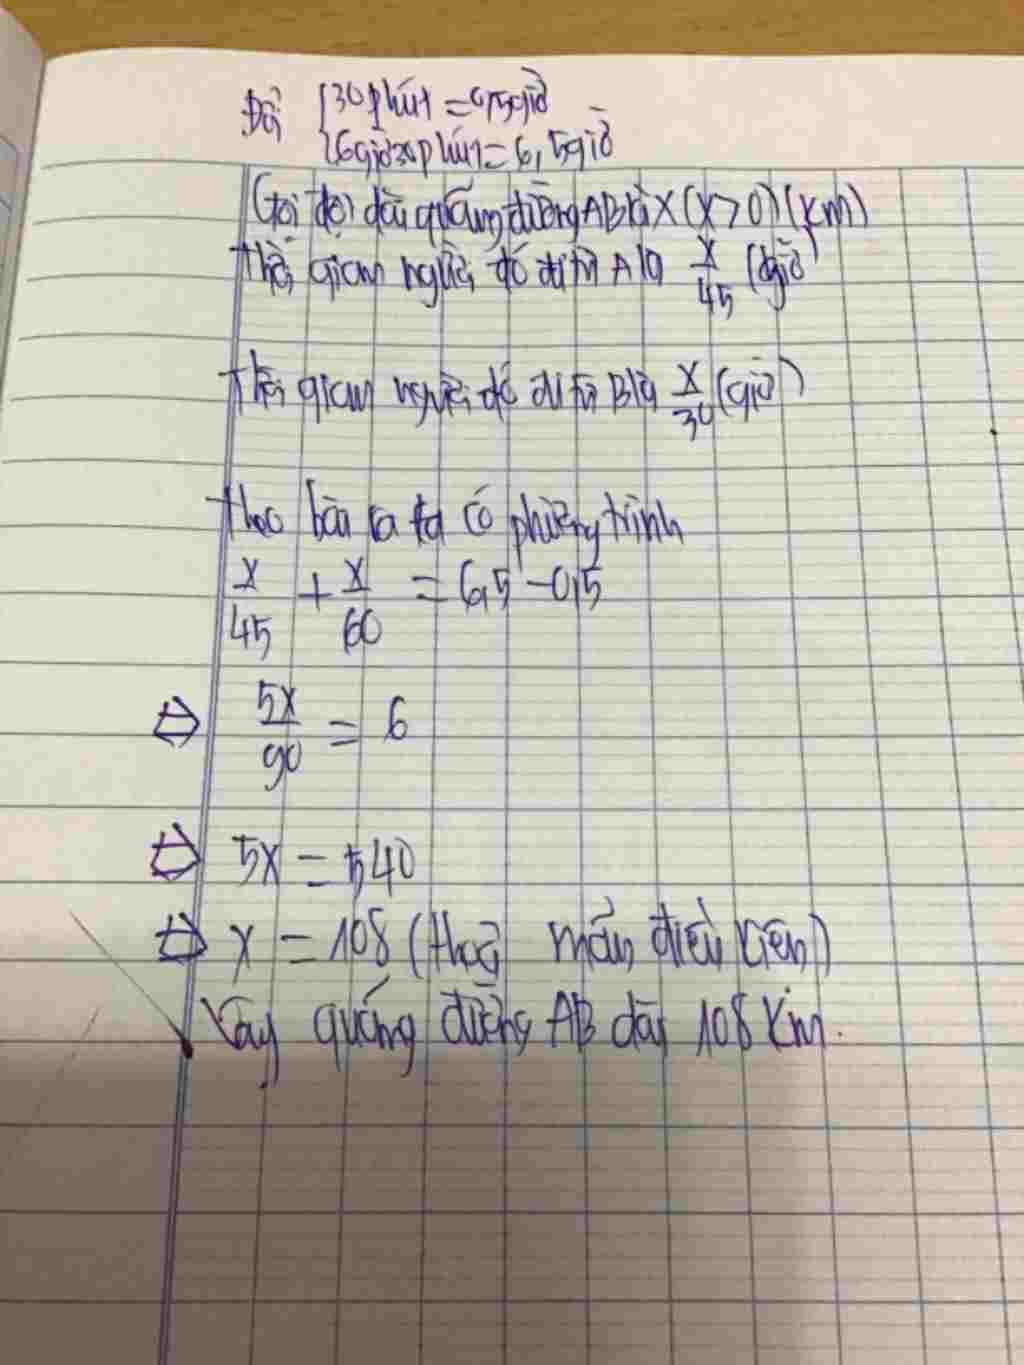 Đổi { 30 phút = 0,5 giờ
{ 6 giờ 30 phút = 6,5 giờ
Gọi độ dài quãng đường AB là x (x > 0) (km)
Thời gian người đó đi từ A là x/45 (giờ)
Thời gian người đó đi từ B là x/30 (giờ)
Theo bài ra ta có phương trình
x/45 + x/60 = 6,5 - 0,5
⇔ 5x/90 = 6
⇔ 5x = 540
⇔ x = 108 (thoả mãn điều kiện)
Vậy quãng đường AB dài 108 km.